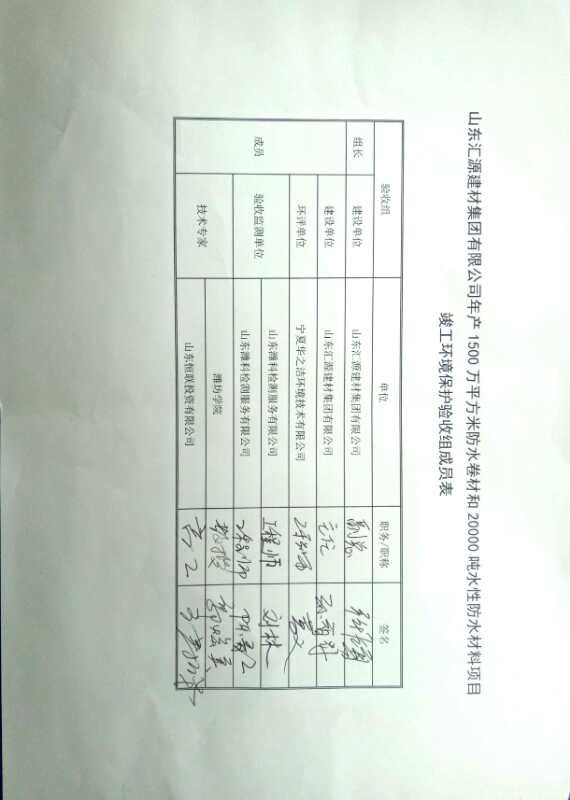 山东汇源建材集团有限公司年产1500万平方米防水卷材和20000吨水性防水材料项目
竣工环境保护验收组成员表
验收组 单位 职务/职称 签名
组长 建设单位 山东汇源建材集团有限公司 副总
成员 建设单位 山东汇源建材集团有限公司 主任
环评单位 宁夏华之洁环境技术有限公司 工程师
验收监测单位 山东潍科检测服务有限公司 工程师 刘林
山东潍科检测服务有限公司 工程师
技术专家 潍坊学院 教授
山东恒联投资有限公司 高工